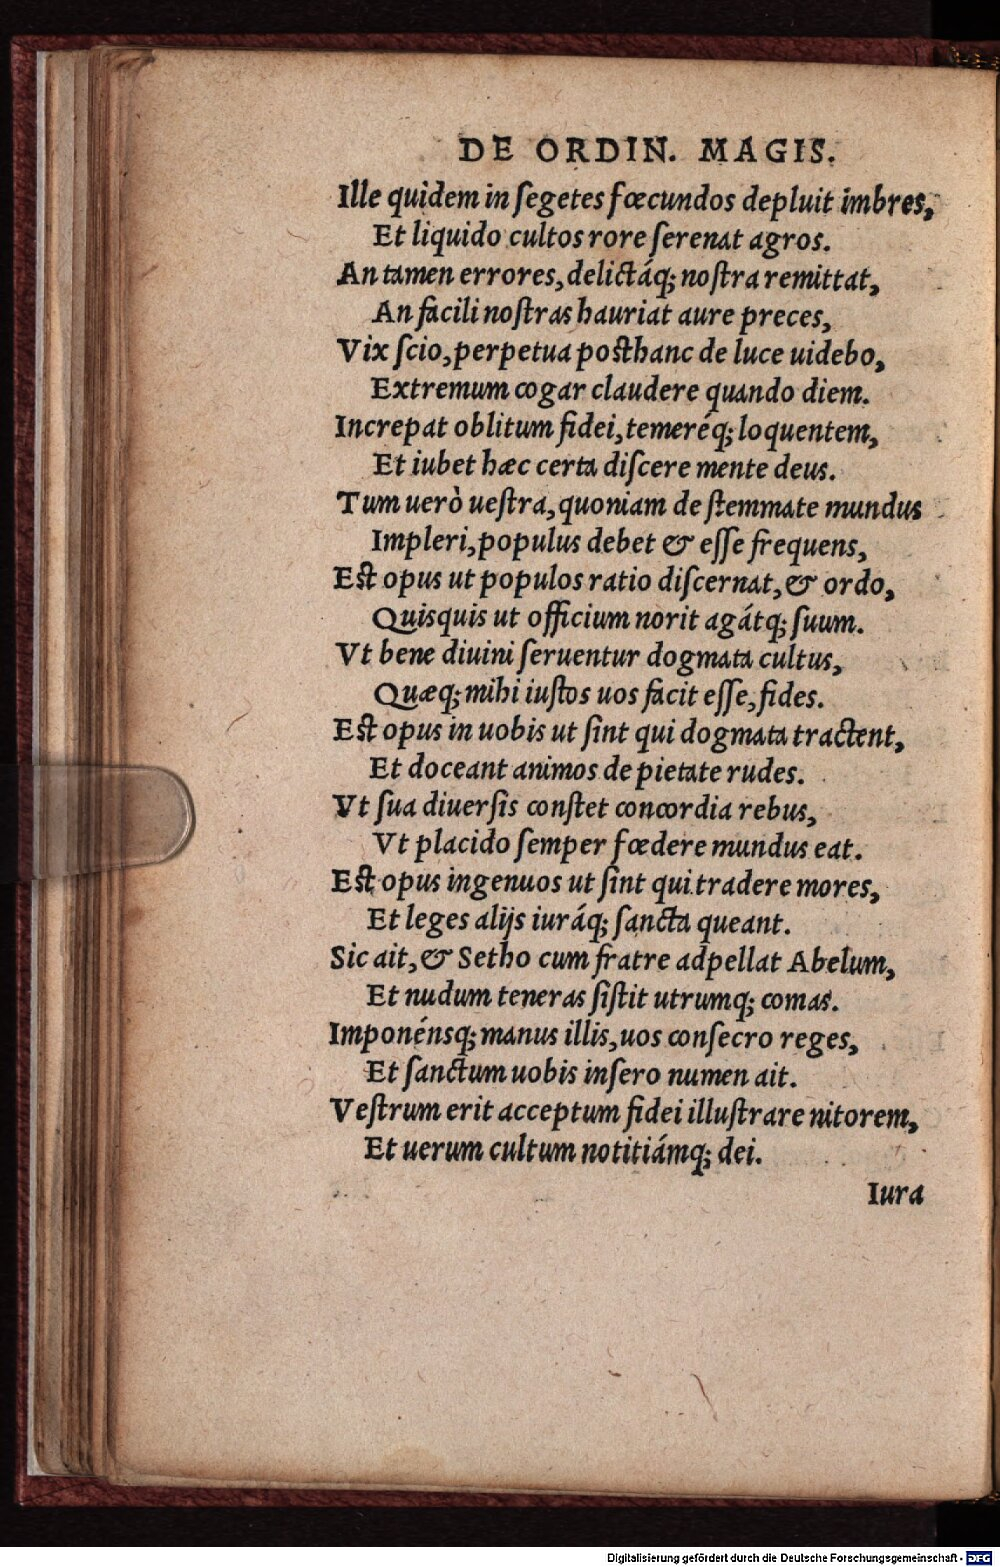 DE ORDIN. MAGIS.
Ille quidem in ſegetes fœcundos depluit imbres,
Et liquido cultos rore ſerenat agros.
An tamen errores, delictáq; noſtra remittat,
An facili noſtras hauriat aure preces,
Vix ſcio, perpetua posthanc de luce uidebo,
Extremum cogar claudere quando diem.
Increpat oblitum fidei, temeréq; loquentem,
Et iubet hæc certa diſcere mente deus.
Tum uerò ueſtra, quoniam de ſtemmate mundus
Impleri, populus debet & eſſe frequens,
Est opus ut populos ratio diſcernat, & ordo,
Quisquis ut officium norit agátq; ſuum.
Vt bene diuini ſeruentur dogmata cultus,
Quæq; mihi iuſtos uos facit eſſe, fides.
Est opus in uobis ut ſint qui dogmata tractent,
Et doceant animos de pietate rudes.
Vt ſua diuerſis conſtet concordia rebus,
Vt placido ſemper fœdere mundus eat.
Est opus ingenuos ut ſint qui tradere mores,
Et leges alijs iuráq; ſancta queant.
Sic ait, & Setho cum fratre adpellat Abelum,
Et nudum teneras ſiſtit utrumq; comas.
Imponénsq; manus illis, uos conſecro reges,
Et ſanctum uobis inſero numen ait.
Veſtrum erit acceptum fidei illuſtrare nitorem,
Et uerum cultum notitiámq; dei.
Iura
Digitalisierung gefördert durch die Deutsche Forschungsgemeinschaft - DFG